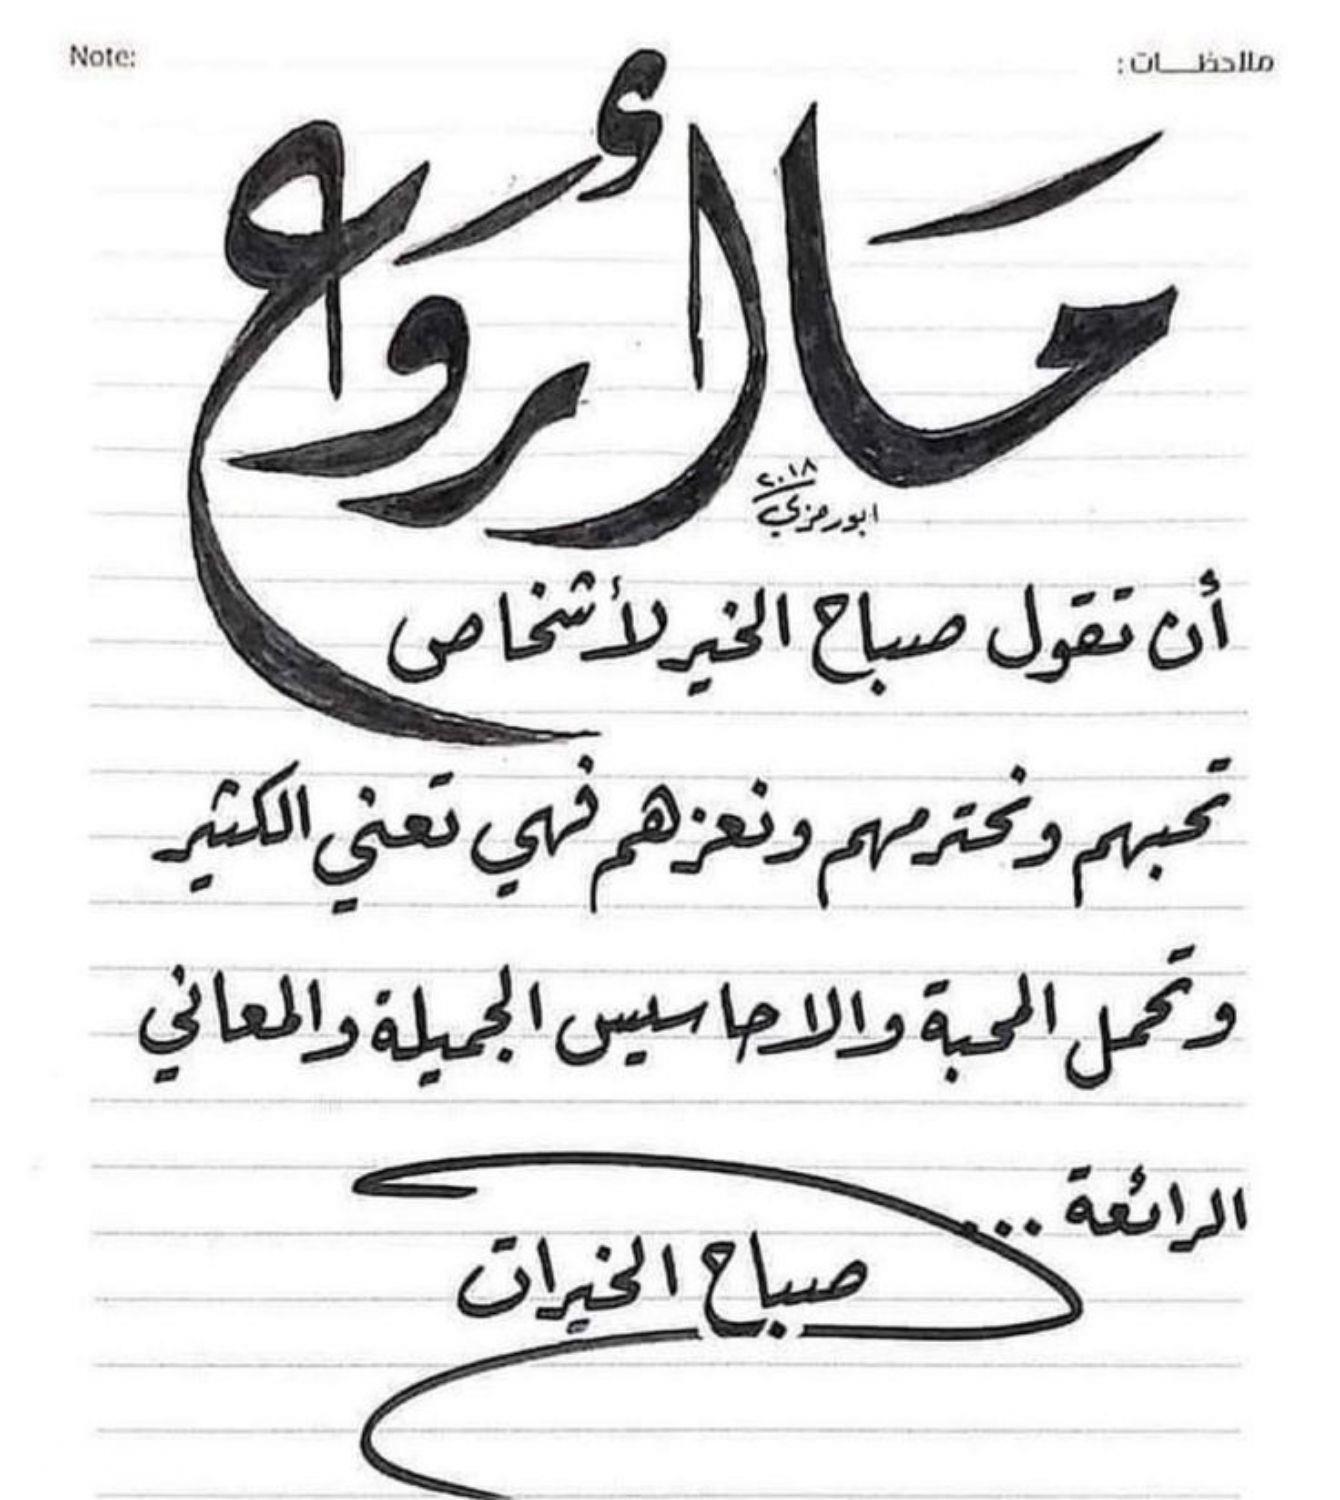 Note:
ملاحظات :
مَا أَروع
٢٠١٨
ابورمزي
أن تقول صباح الخير لأشخاص
تحبهم ونحترمهم ونعزهم فهي تعني الكثير
وتحمل المحبة والاحاسيس الجميلة والمعاني
الرائعة ...
صباح الخيرات